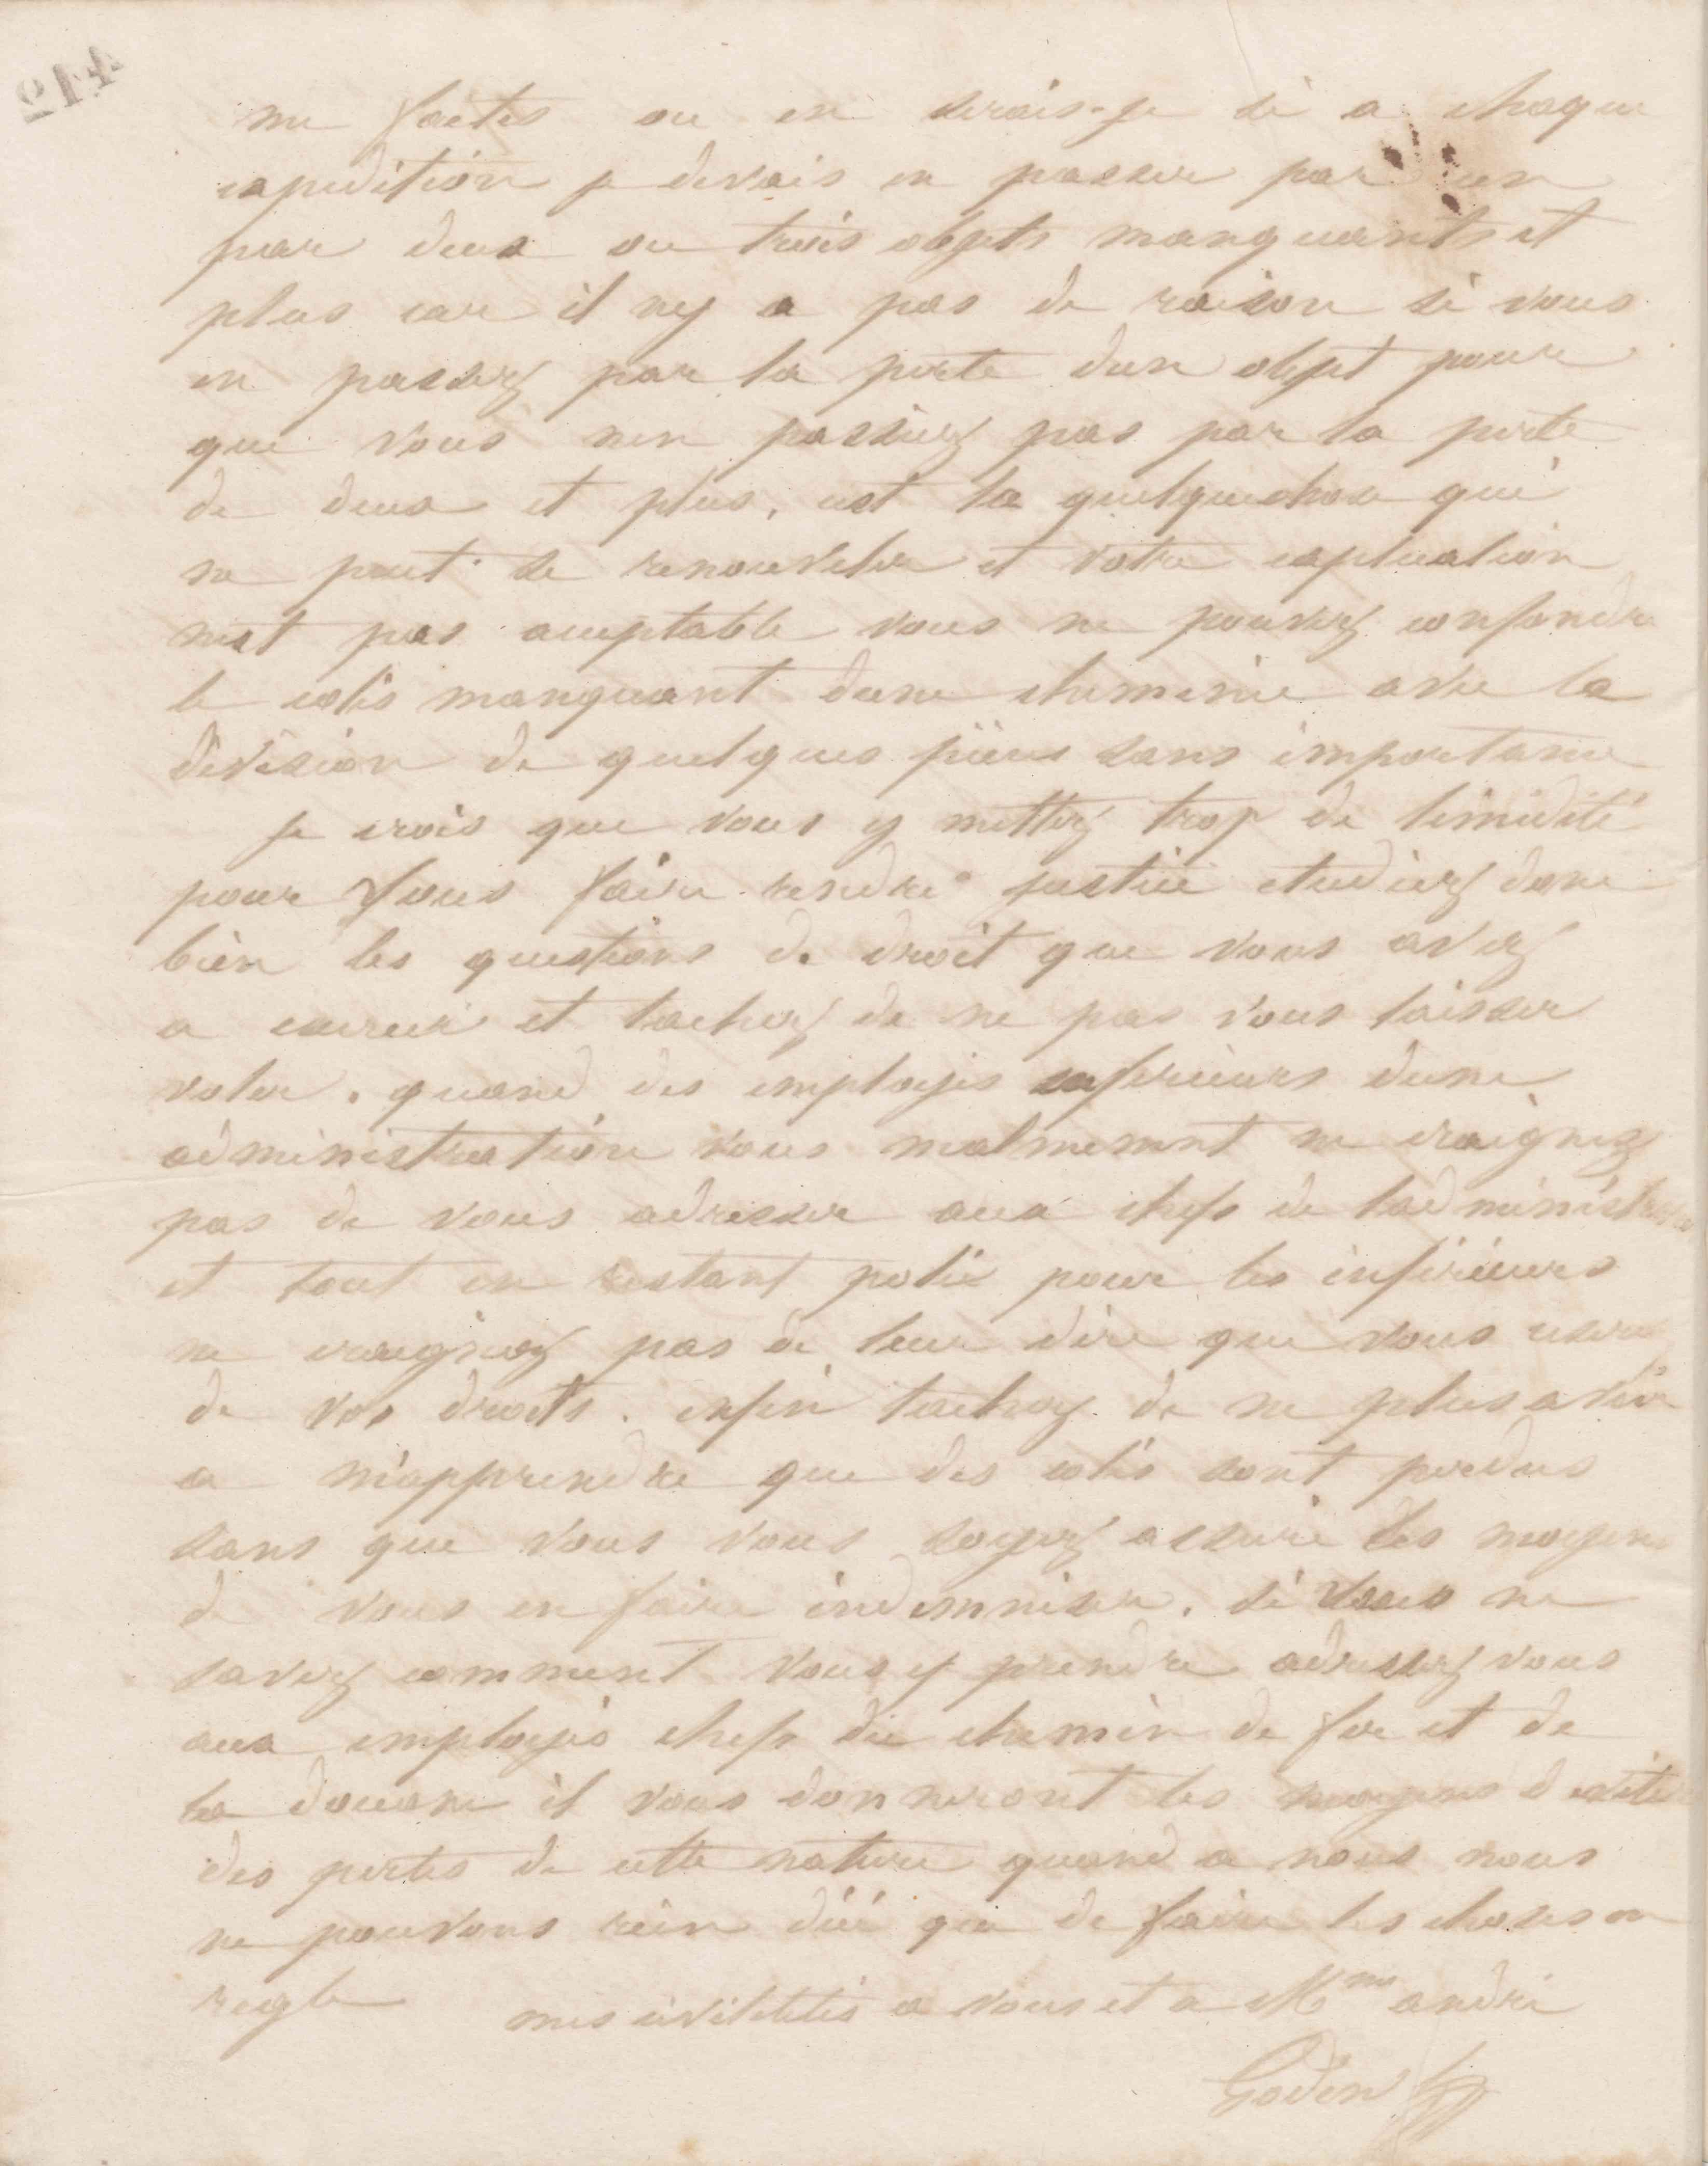 214
me faites ou en serais-je si a chaque
expedition je devais en passer par un
par deux ou trois objets manquants et
plus car il ny a pas de raison si vous
en passez par la perte dun objet pour
que vous nen passiez pas par la perte
de deux et plus, cest la quelquechose qui
ne peut se renouveler et votre explication
nest pas acceptable vous ne pouvez confondre
le colis manquant dune cheminée avec la
division de quelques pièces sans importance
je crois que vous y mettez trop de timidité
pour vous faire rendre justice etudiez donc
bien les questions de droit que vous avez
a exercer et tachez de ne pas vous laisser
voler. quand des employés inferieurs dune
administration vous malmenent ne craignez
pas de vous adresser aux chefs de ladministration
et tout en restant poli pour les inférieurs
ne craignez pas de leur dire que vous userez
de vos droits. enfin tachez de ne plus avoir
a m'apprendre que des colis sont perdus
sans que vous vous soyez assuré les moyens
de vous en faire indemniser. si vous ne
savez comment vous y prendre adressez vous
aux employés chefs du chemin de fer et de
la douane il vous donneront les moyens d eviter
des pertes de cette nature quand a nous nous
ne pouvons rien dici que de faire les choses en
regle mes civilités a vous et a Mme andré
Godin